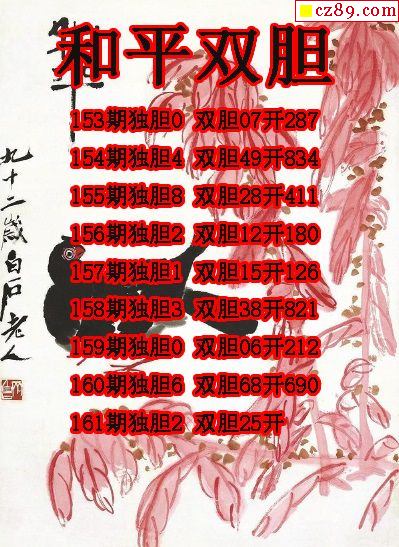 cz89.com
和平双胆
153期独胆0 双胆07开287
154期独胆4 双胆49开834
155期独胆8 双胆28开411
156期独胆2 双胆12开180
157期独胆1 双胆15开126
158期独胆3 双胆38开821
159期独胆0 双胆06开212
160期独胆6 双胆68开690
161期独胆2 双胆25开
九十二岁白石老人